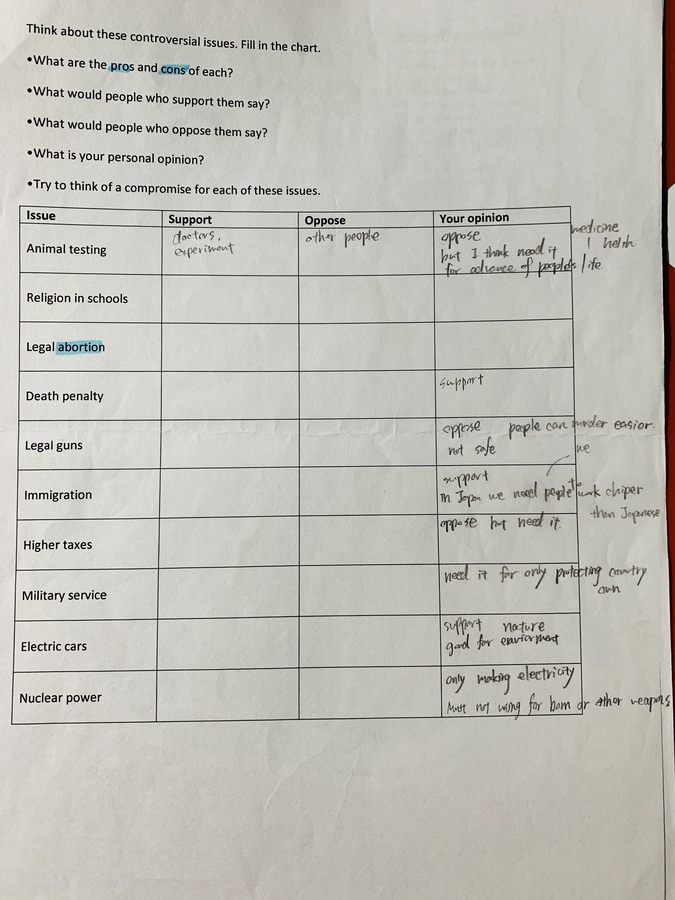 Think about these controversial issues. Fill in the chart.
•What are the pros and cons of each?
•What would people who support them say?
•What would people who oppose them say?
•What is your personal opinion?
•Try to think of a compromise for each of these issues.
Issue Support Oppose Your opinion
Animal testing
doctors,
experiment
other people
oppose
but I think need it
for advance of people's life
medicine
health
Religion in schools
Legal abortion
Death penalty
support
Legal guns
oppose people can murder easier.
not safe
Immigration
support we
In Japan we need people to work chiper
than Japanese
Higher taxes
oppose but need it.
Military service
need it for only protecting country
own
Electric cars
support nature
good for enviorment
Nuclear power
only making electricity
Must not using for bom or other weapons